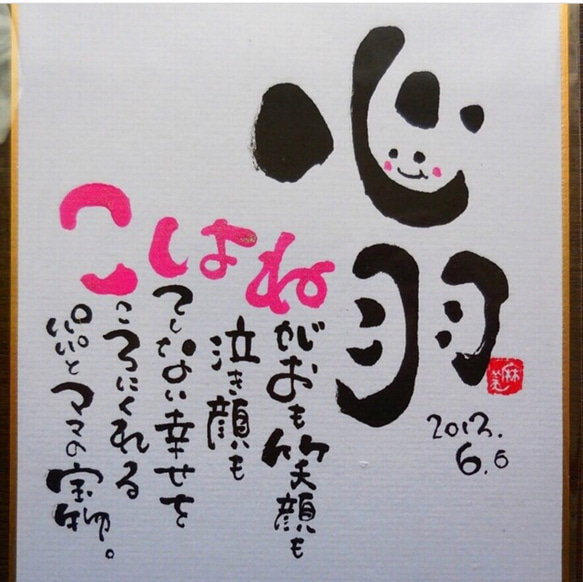 心羽
こはね
がおも笑顔も
泣き顔も
てしない幸せを
ころにくれる
パパとママの宝物。
2012.
6.6
麻美